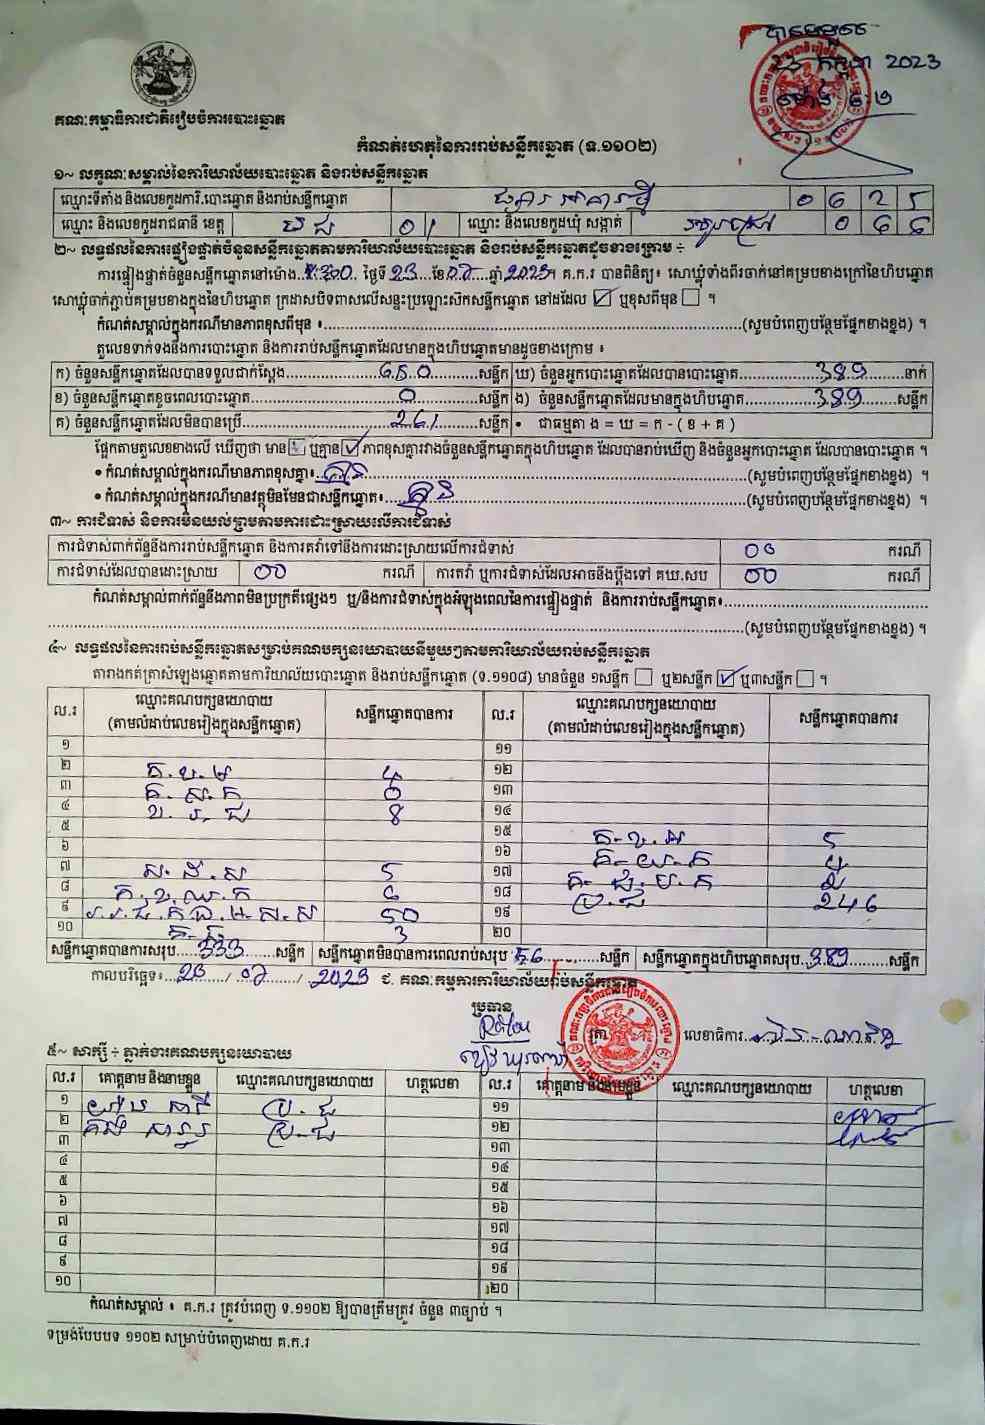 2023
គណៈកម្មាធិការជាតិរៀបចំការបោះឆ្នោត
កំណត់ហេតុនៃការរាប់សន្លឹកឆ្នោត (ទ.១១០២)
១~ លក្ខណៈសម្គាល់នៃការិយាល័យបោះឆ្នោត និងរាប់សន្លឹកឆ្នោត
ឈ្មោះទីតាំង និងលេខកូដការិ.បោះឆ្នោត និងរាប់សន្លឹកឆ្នោត 0 6 2 5
ឈ្មោះ និងលេខកូដរាជធានី ខេត្ត ប ជ 0 1 ឈ្មោះ និងលេខកូដឃុំ សង្កាត់ 0 6 6
២~ លទ្ធផលនៃការផ្ទៀងផ្ទាត់ចំនួនសន្លឹកឆ្នោតតាមការិយាល័យបោះឆ្នោត និងរាប់សន្លឹកឆ្នោតដូចខាងក្រោម ÷
ការផ្ទៀងផ្ទាត់ចំនួនសន្លឹកឆ្នោតនៅម៉ោង ថ្ងៃទី 23 ខែ 07 ឆ្នាំ 2023។ គ.ក.រ បានពិនិត្យ៖ សោឃ្លុំទាំងពីរចាក់នៅគម្របខាងក្រៅនៃហិបឆ្នោត
សោឃ្លុំចាក់ភ្ជាប់គម្របខាងក្នុងនៃហិបឆ្នោត ក្រដាសបិទពាសលើសន្ទះប្រឡោះសិកសន្លឹកឆ្នោត នៅដដែល ☑ ឬខុសពីមុន ☐ ។
កំណត់សម្គាល់ក្នុងករណីមានភាពខុសពីមុន ៖ (សូមបំពេញបន្ថែមផ្នែកខាងខ្នង) ។
តួលេខទាក់ទងនឹងការបោះឆ្នោត និងការរាប់សន្លឹកឆ្នោតដែលមានក្នុងហិបឆ្នោតមានដូចខាងក្រោម ៖
ក) ចំនួនសន្លឹកឆ្នោតដែលបានទទួលជាក់ស្តែង 650 សន្លឹក ឃ) ចំនួនអ្នកបោះឆ្នោតដែលបានបោះឆ្នោត 389 នាក់
ខ) ចំនួនសន្លឹកឆ្នោតខូចពេលបោះឆ្នោត 0 សន្លឹក ង) ចំនួនសន្លឹកឆ្នោតដែលមានក្នុងហិបឆ្នោត 389 សន្លឹក
គ) ចំនួនសន្លឹកឆ្នោតដែលមិនបានប្រើ 261 សន្លឹក • ជាធម្មតា ង = ឃ = ក - ( ខ + គ )
ផ្អែកតាមតួលេខខាងលើ ឃើញថា មាន ☐ ឬគ្មាន ☑ ភាពខុសគ្នារវាងចំនួនសន្លឹកឆ្នោតក្នុងហិបឆ្នោត ដែលបានរាប់ឃើញ និងចំនួនអ្នកបោះឆ្នោត ដែលបានបោះឆ្នោត ។
• កំណត់សម្គាល់ក្នុងករណីមានភាពខុសគ្នា៖ គ្មាន (សូមបំពេញបន្ថែមផ្នែកខាងខ្នង) ។
• កំណត់សម្គាល់ក្នុងករណីមានវត្ថុមិនមែនជាសន្លឹកឆ្នោត៖ គ្មាន (សូមបំពេញបន្ថែមផ្នែកខាងខ្នង) ។
៣~ ការជំទាស់ និងការមិនយល់ព្រមតាមការដោះស្រាយលើការជំទាស់
ការជំទាស់ពាក់ព័ន្ធនឹងការរាប់សន្លឹកឆ្នោត និងការតវ៉ាទៅនឹងការដោះស្រាយលើការជំទាស់ 00 ករណី
ការជំទាស់ដែលបានដោះស្រាយ 00 ករណី ការតវ៉ា ឬការជំទាស់ដែលអាចនឹងប្តឹងទៅ គឃ.សប 00 ករណី
កំណត់សម្គាល់ពាក់ព័ន្ធនឹងភាពមិនប្រក្រតីផ្សេងៗ ឬ/និងការជំទាស់ក្នុងអំឡុងពេលនៃការផ្ទៀងផ្ទាត់ និងការរាប់សន្លឹកឆ្នោត៖
(សូមបំពេញបន្ថែមផ្នែកខាងខ្នង) ។
៤~ លទ្ធផលនៃការរាប់សន្លឹកឆ្នោតសម្រាប់គណបក្សនយោបាយនីមួយៗតាមការិយាល័យរាប់សន្លឹកឆ្នោត
តារាងកត់ត្រាសំឡេងឆ្នោតតាមការិយាល័យបោះឆ្នោត និងរាប់សន្លឹកឆ្នោត (ទ.១១០៨) មានចំនួន ១សន្លឹក ☐ ឬ២សន្លឹក ☑ ឬ៣សន្លឹក ☐ ។
ល.រ ឈ្មោះគណបក្សនយោបាយ (តាមលំដាប់លេខរៀងក្នុងសន្លឹកឆ្នោត) សន្លឹកឆ្នោតបានការ ល.រ ឈ្មោះគណបក្សនយោបាយ (តាមលំដាប់លេខរៀងក្នុងសន្លឹកឆ្នោត) សន្លឹកឆ្នោតបានការ
១ ១១
២ ១២
៣ ១៣
៤ ខ.រ.ជ 8 ១៤
៥ ១៥
៦ ១៦
៧ ស.ដ.ស 5 ១៧
៨ ១៨ ប្រ.ជ 246
៩ 50 ១៩
១០ 3 ២០
សន្លឹកឆ្នោតបានការសរុប 333 សន្លឹក សន្លឹកឆ្នោតមិនបានការពេលរាប់សរុប 56 សន្លឹក សន្លឹកឆ្នោតក្នុងហិបឆ្នោតសរុប 389 សន្លឹក
កាលបរិច្ឆេទ៖ 23 / 07 / 2023 ជ. គណៈកម្មការការិយាល័យរាប់សន្លឹកឆ្នោត
ប្រធាន
ត្រា លេខាធិការ
៥~ សាក្សី ÷ ភ្នាក់ងារគណបក្សនយោបាយ
ល.រ គោត្តនាម និងនាមខ្លួន ឈ្មោះគណបក្សនយោបាយ ហត្ថលេខា ល.រ គោត្តនាម និងនាមខ្លួន ឈ្មោះគណបក្សនយោបាយ ហត្ថលេខា
១ ប្រ.ជ ១១
២ ប្រ.ជ ១២
៣ ១៣
៤ ១៤
៥ ១៥
៦ ១៦
៧ ១៧
៨ ១៨
៩ ១៩
១០ ២០
កំណត់សម្គាល់ ៖ គ.ក.រ ត្រូវបំពេញ ទ.១១០២ ឱ្យបានត្រឹមត្រូវ ចំនួន ៣ច្បាប់ ។
ទម្រង់បែបបទ ១១០២ សម្រាប់បំពេញដោយ គ.ក.រ